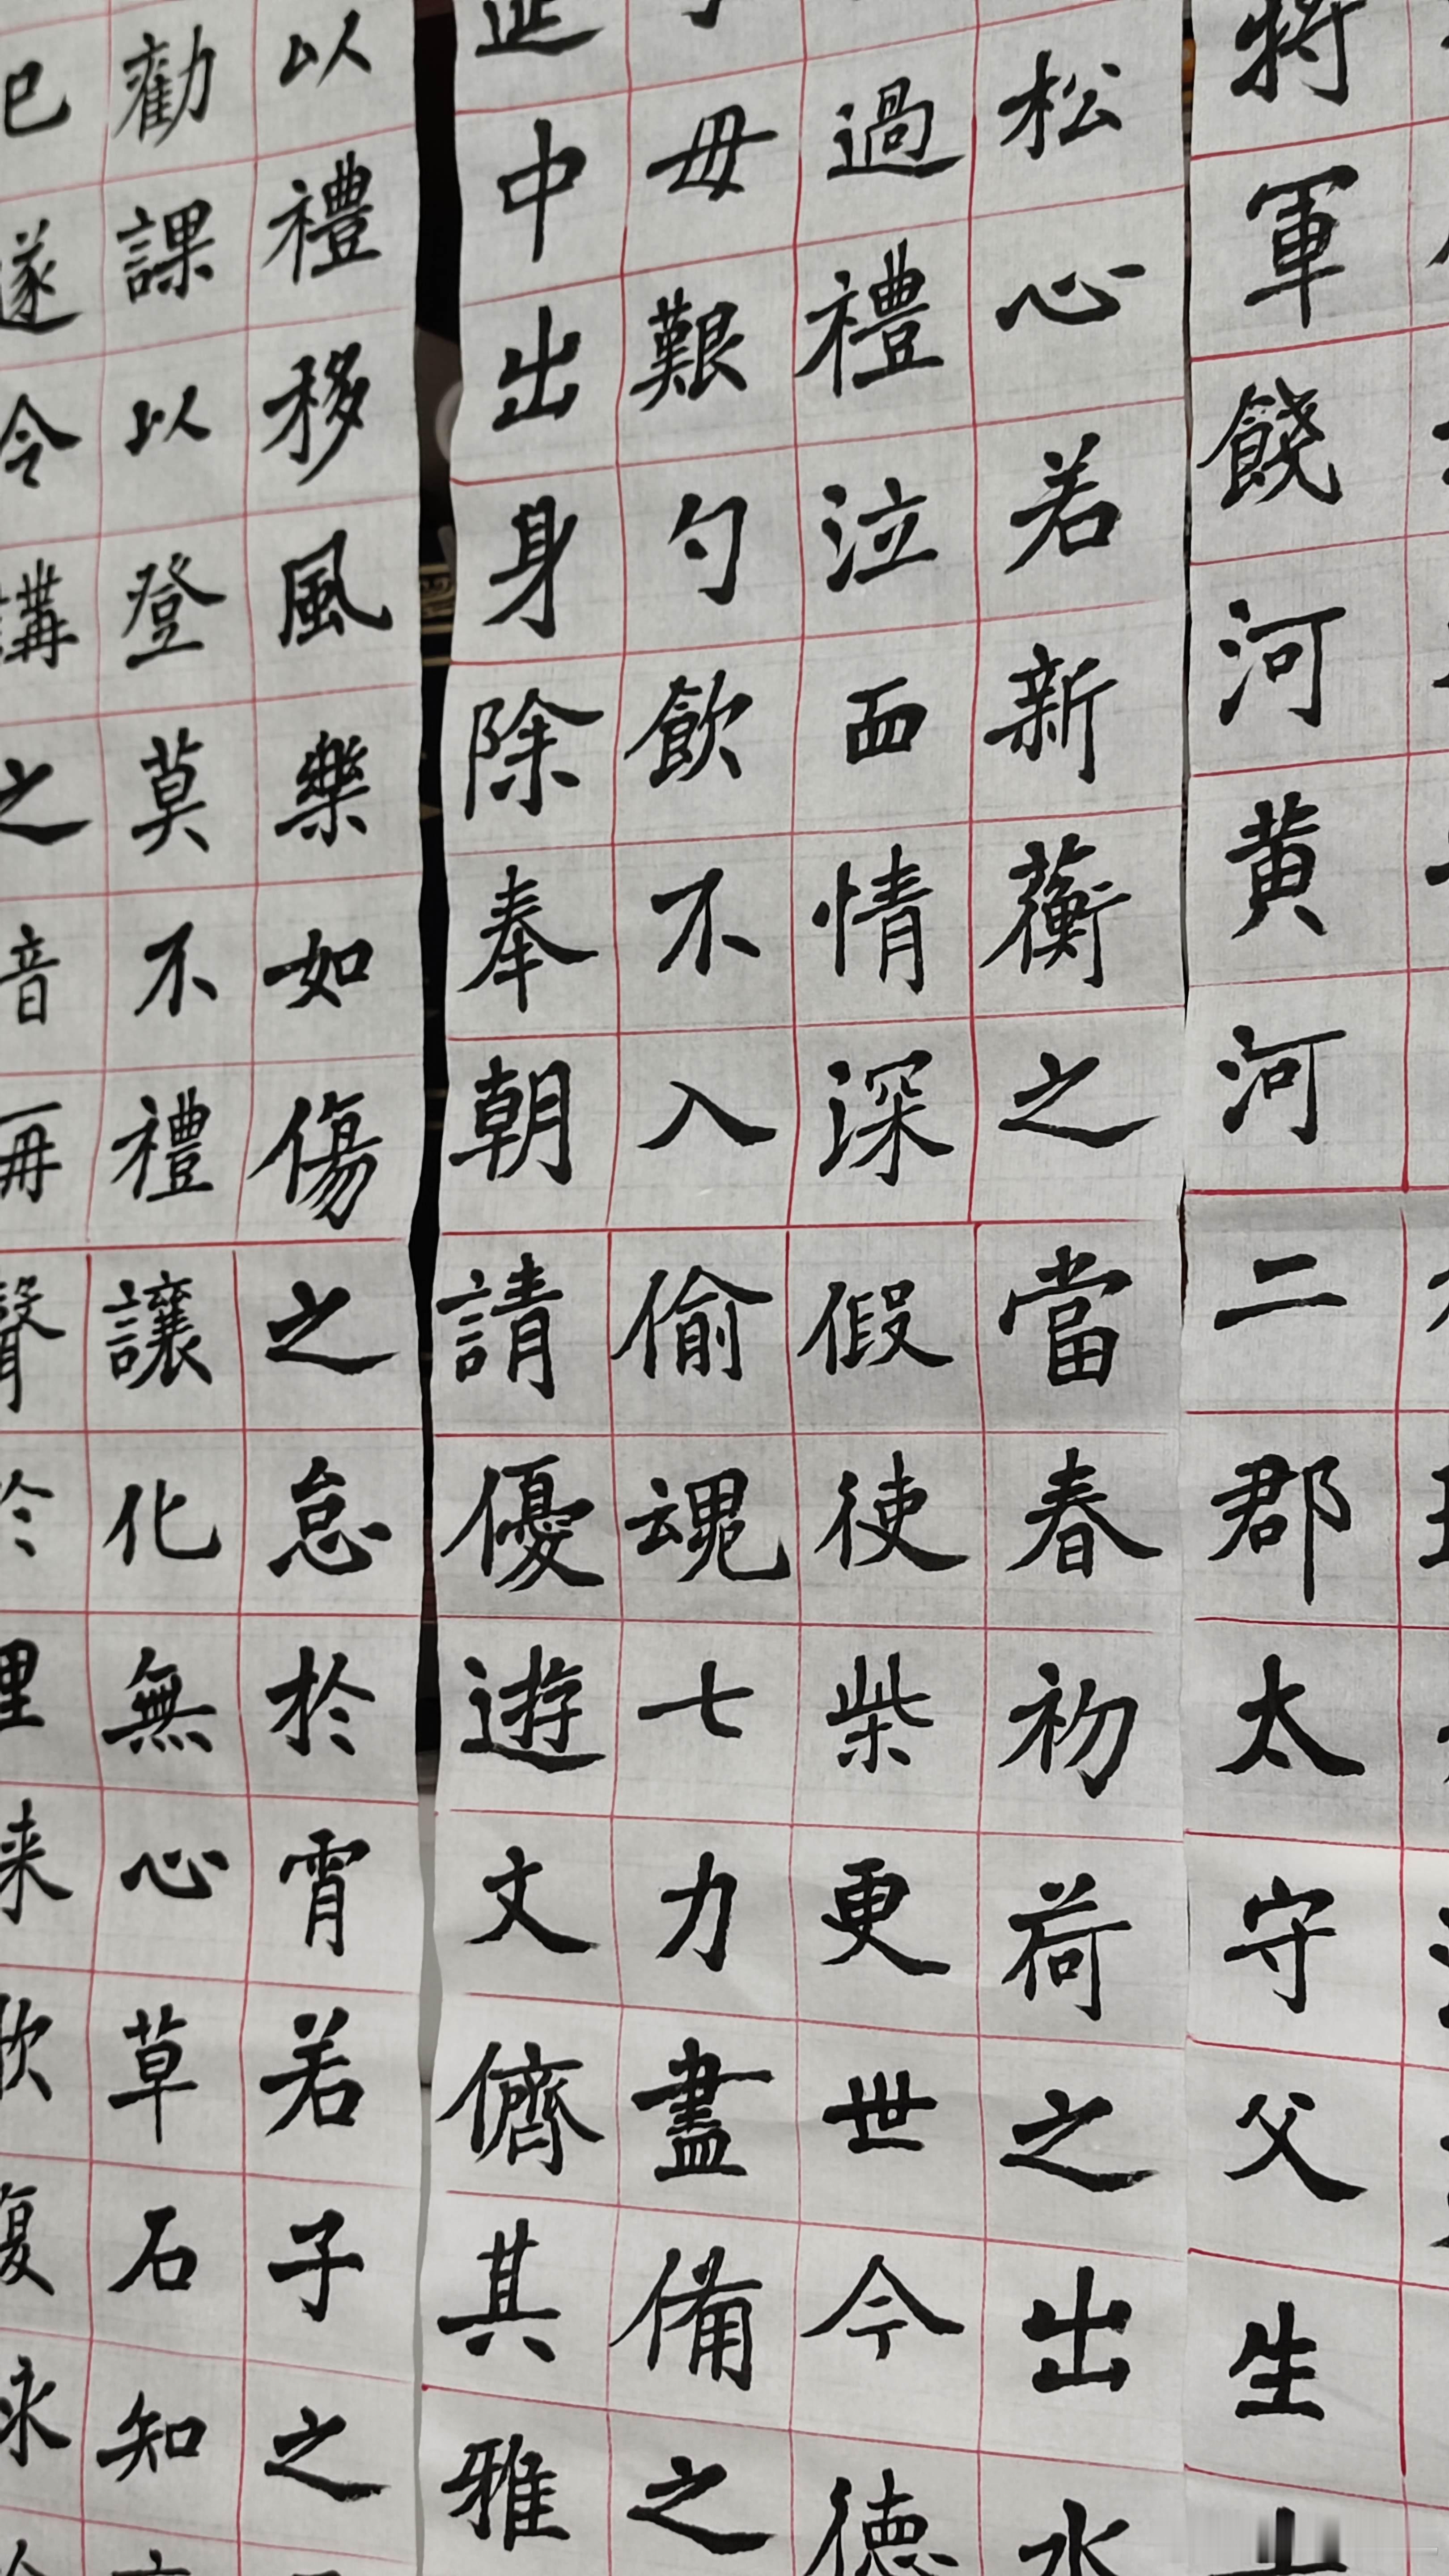 将軍饒河黄河二郡太守父生
松心若新蘅之當春初荷之出水
過禮泣血情深假使柴更世今德
毋艱勺飲不入偷魂七力盡備之
中出身除奉朝請優遊文儕其雅
以禮移風樂如傷之怠於霄若子之
勸課以登莫不禮讓化無心草石知
巳遂令講之音再聲於里来